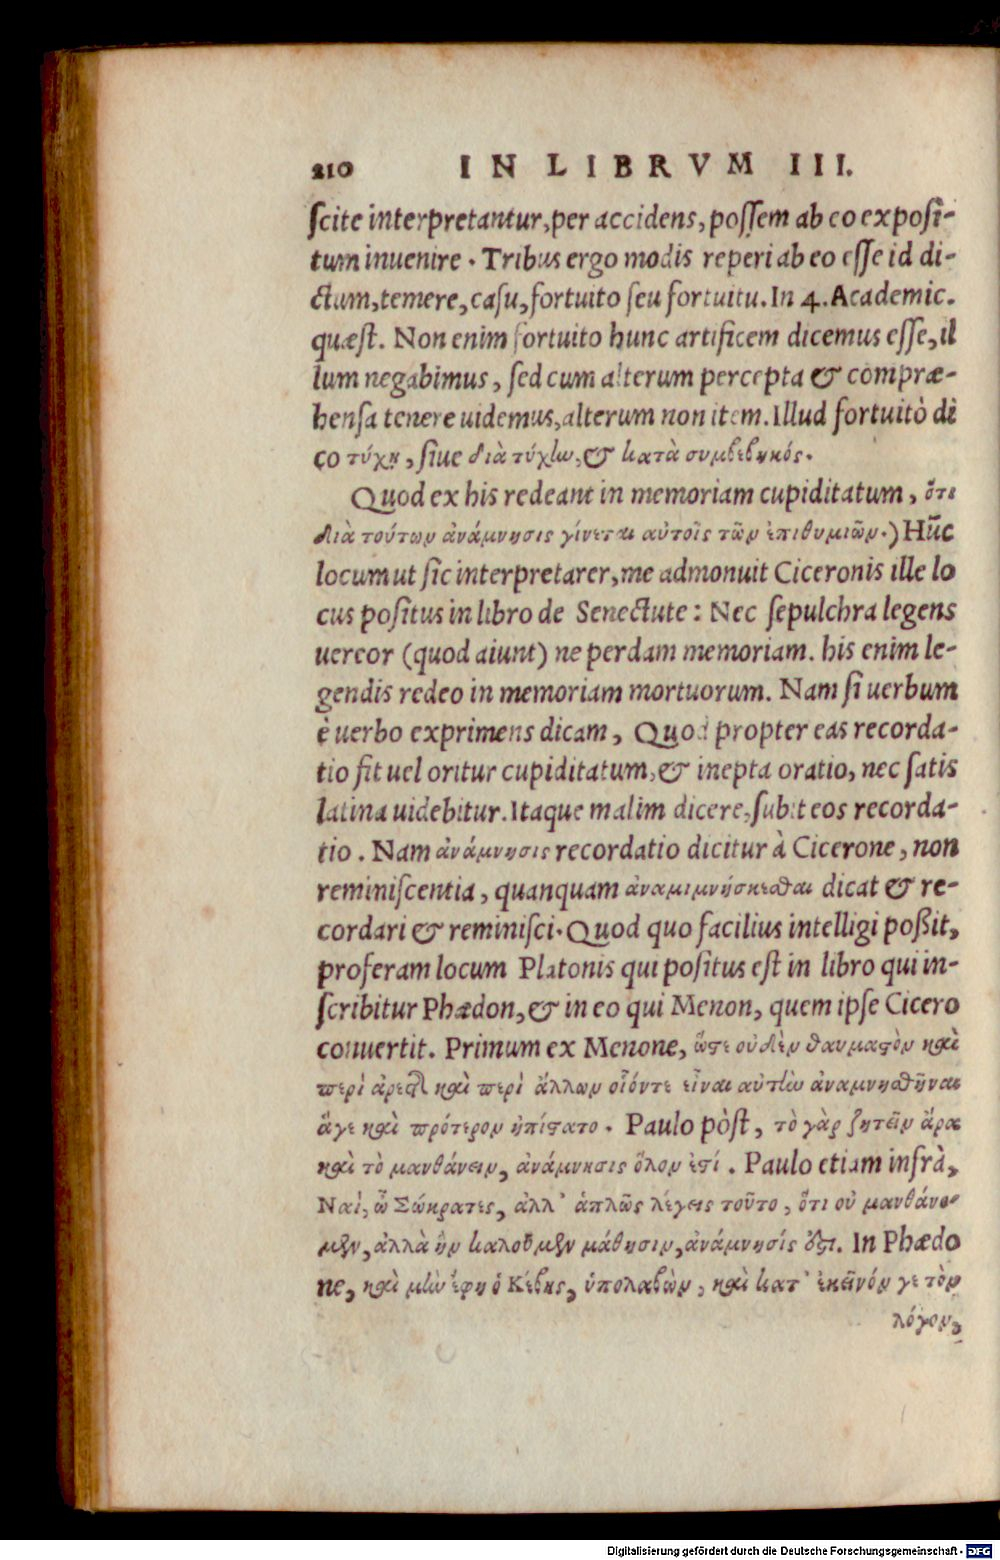 210 IN LIBRVM III.
ſcite interpretantur, per accidens, poſſem ab eo expoſi-
tum inuenire. Tribus ergo modis reperi ab eo eſſe id di-
ctum, temere, caſu, fortuito ſeu fortuitu. In 4. Academic.
quæſt. Non enim fortuito hunc artificem dicemus eſſe, il
lum negabimus, ſed cum alterum percepta & compræ-
henſa tenere uidemus, alterum non item. Illud fortuitò di
co τύχῃ, ſiue διὰ τύχην, & κατὰ συμβεβηκός.
Quod ex his redeant in memoriam cupiditatum, ὅτι
διὰ τούτων ἀνάμνησις γίνεται αὐτοῖς τῶν ἐπιθυμιῶν.) Hũc
locum ut ſic interpretarer, me admonuit Ciceronis ille lo
cus poſitus in libro de Senectute: Nec ſepulchra legens
uereor (quod aiunt) ne perdam memoriam. his enim le-
gendis redeo in memoriam mortuorum. Nam ſi uerbum
è uerbo exprimens dicam, Quod propter eas recorda-
tio fit uel oritur cupiditatum, & inepta oratio, nec ſatis
latina uidebitur. Itaque malim dicere, ſubit eos recorda-
tio. Nam ἀνάμνησις recordatio dicitur à Cicerone, non
reminiſcentia, quanquam ἀναμιμνήσκεσθαι dicat & re-
cordari & reminiſci. Quod quo facilius intelligi poßit,
proferam locum Platonis qui poſitus eſt in libro qui in-
ſcribitur Phædon, & in eo qui Menon, quem ipſe Cicero
conuertit. Primum ex Menone, ὥστε οὐδὲν θαυμαστὸν καὶ
περὶ ἀρετῆς καὶ περὶ ἄλλων οἷόντε εἶναι αὐτὴν ἀναμνησθῆναι
ἅγε καὶ πρότερον ἠπίστατο. Paulo pòſt, τὸ γὰρ ζητεῖν ἄρα
καὶ τὸ μανθάνειν, ἀνάμνησις ὅλον ἐστί. Paulo etiam infrà,
Ναί, ὦ Σώκρατες, ἀλλ' ἁπλῶς λέγεις τοῦτο, ὅτι οὐ μανθάνο-
μεν, ἀλλὰ ἣν καλοῦμεν μάθησιν, ἀνάμνησίς ἐστι. In Phædo
ne, καὶ μὴν ἔφη ὁ Κέβης, ὑπολαβὼν, καὶ κατ' ἐκεῖνόν γε τὸν
λόγον,
Digitalisierung gefördert durch die Deutsche Forschungsgemeinschaft - DFG